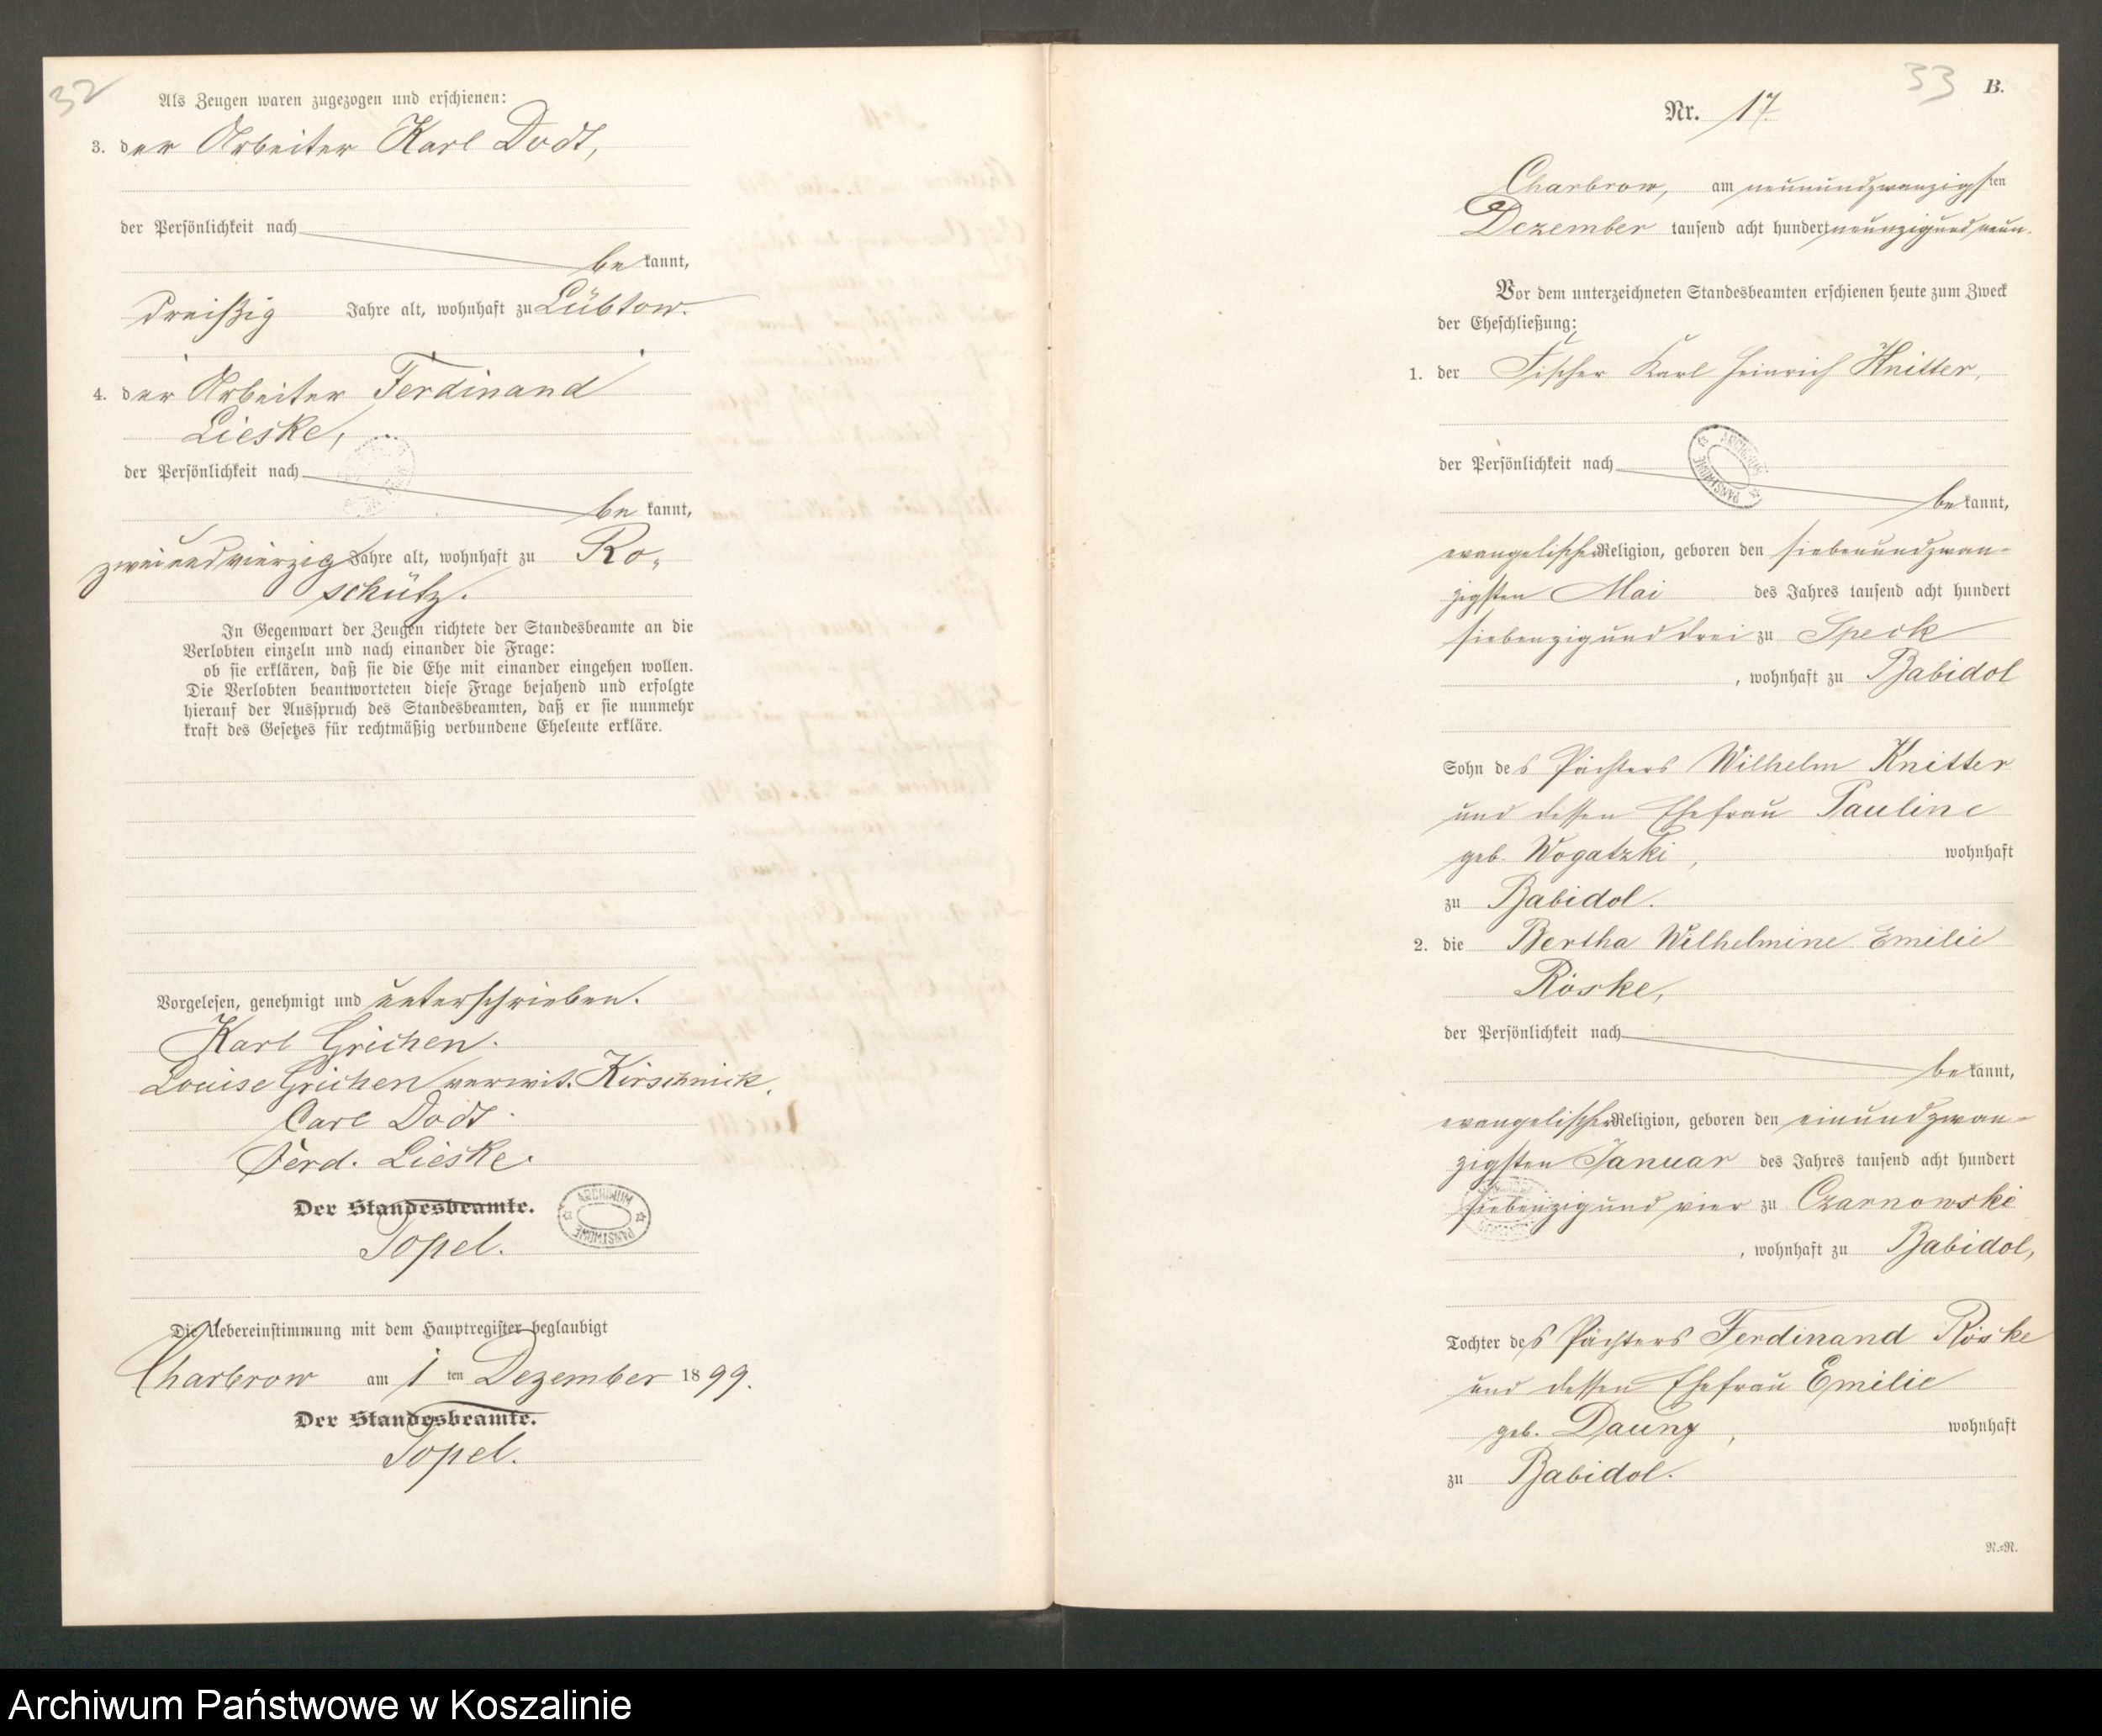 32
Als Zeugen waren zugezogen und erschienen:
3. der Arbeiter Karl Dodt,
der Persönlichkeit nach
bekannt,
dreißig Jahre alt, wohnhaft zu Lübtow.
4. der Arbeiter Ferdinand
Lieske,
der Persönlichkeit nach
bekannt,
zweiundvierzig Jahre alt, wohnhaft zu Ro-
schütz.
In Gegenwart der Zeugen richtete der Standesbeamte an die
Verlobten einzeln und nach einander die Frage:
ob sie erklären, daß sie die Ehe mit einander eingehen wollen.
Die Verlobten beantworteten diese Frage bejahend und erfolgte
hierauf der Ausspruch des Standesbeamten, daß er sie nunmehr
kraft des Gesetzes für rechtmäßig verbundene Eheleute erkläre.
Vorgelesen, genehmigt und unterschrieben.
Karl Grichen.
Louise Grichen verwit. Kirschnick.
Carl Dodt.
Ferd. Lieske.
Der Standesbeamte.
Topel.
ARCHIWUM PAŃSTWOWE
Die Uebereinstimmung mit dem Hauptregister beglaubigt
Charbrow am 1ten Dezember 1899.
Der Standesbeamte.
Topel.
33 B.
Nr. 17
Charbrow, am neunundzwanzigsten
Dezember tausend acht hundert neunzig und neun.
Vor dem unterzeichneten Standesbeamten erschienen heute zum Zweck
der Eheschließung:
1. der Fischer Karl Heinrich Knitter,
ARCHIWUM PAŃSTWOWE
der Persönlichkeit nach
bekannt,
evangelischer Religion, geboren den siebenundzwan-
zigsten Mai des Jahres tausend acht hundert
siebenzig und drei zu Speck
, wohnhaft zu Babidol
Sohn des Pächters Wilhelm Knitter
und dessen Ehefrau Pauline
geb. Wogatzki, wohnhaft
zu Babidol.
2. die Bertha Wilhelmine Emilie
Röske,
der Persönlichkeit nach
bekannt,
evangelischer Religion, geboren den einundzwan-
zigsten Januar des Jahres tausend acht hundert
siebenzig und vier zu Czarnowske
, wohnhaft zu Babidol,
Tochter des Pächters Ferdinand Röske
und dessen Ehefrau Emilie
geb. Daung, wohnhaft
zu Babidol.
N.=R.
Archiwum Państwowe w Koszalinie